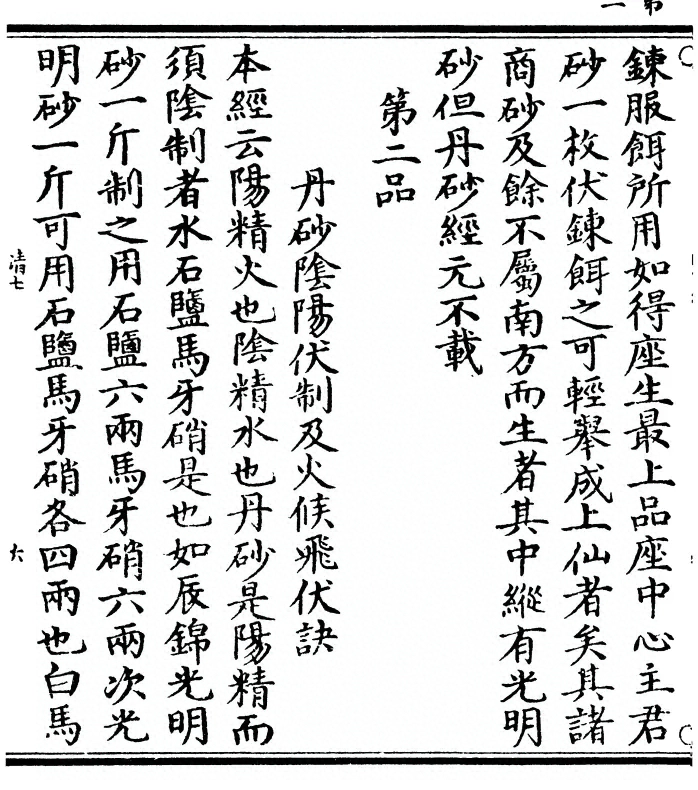 鍊服餌所用如得座生最上品座中心主君
砂一枚伏鍊餌之可輕舉成上仙者矣其諸
商砂及餘不屬南方而生者其中縱有光明
砂但丹砂經元不載
第二品
丹砂陰陽伏制及火候飛伏訣
本經云陽精火也陰精水也丹砂是陽精而
須陰制者水石鹽馬牙硝是也如辰錦光明
砂一斤制之用石鹽六兩馬牙硝六兩次光
明砂一斤可用石鹽馬牙硝各四兩也白馬
清七
六